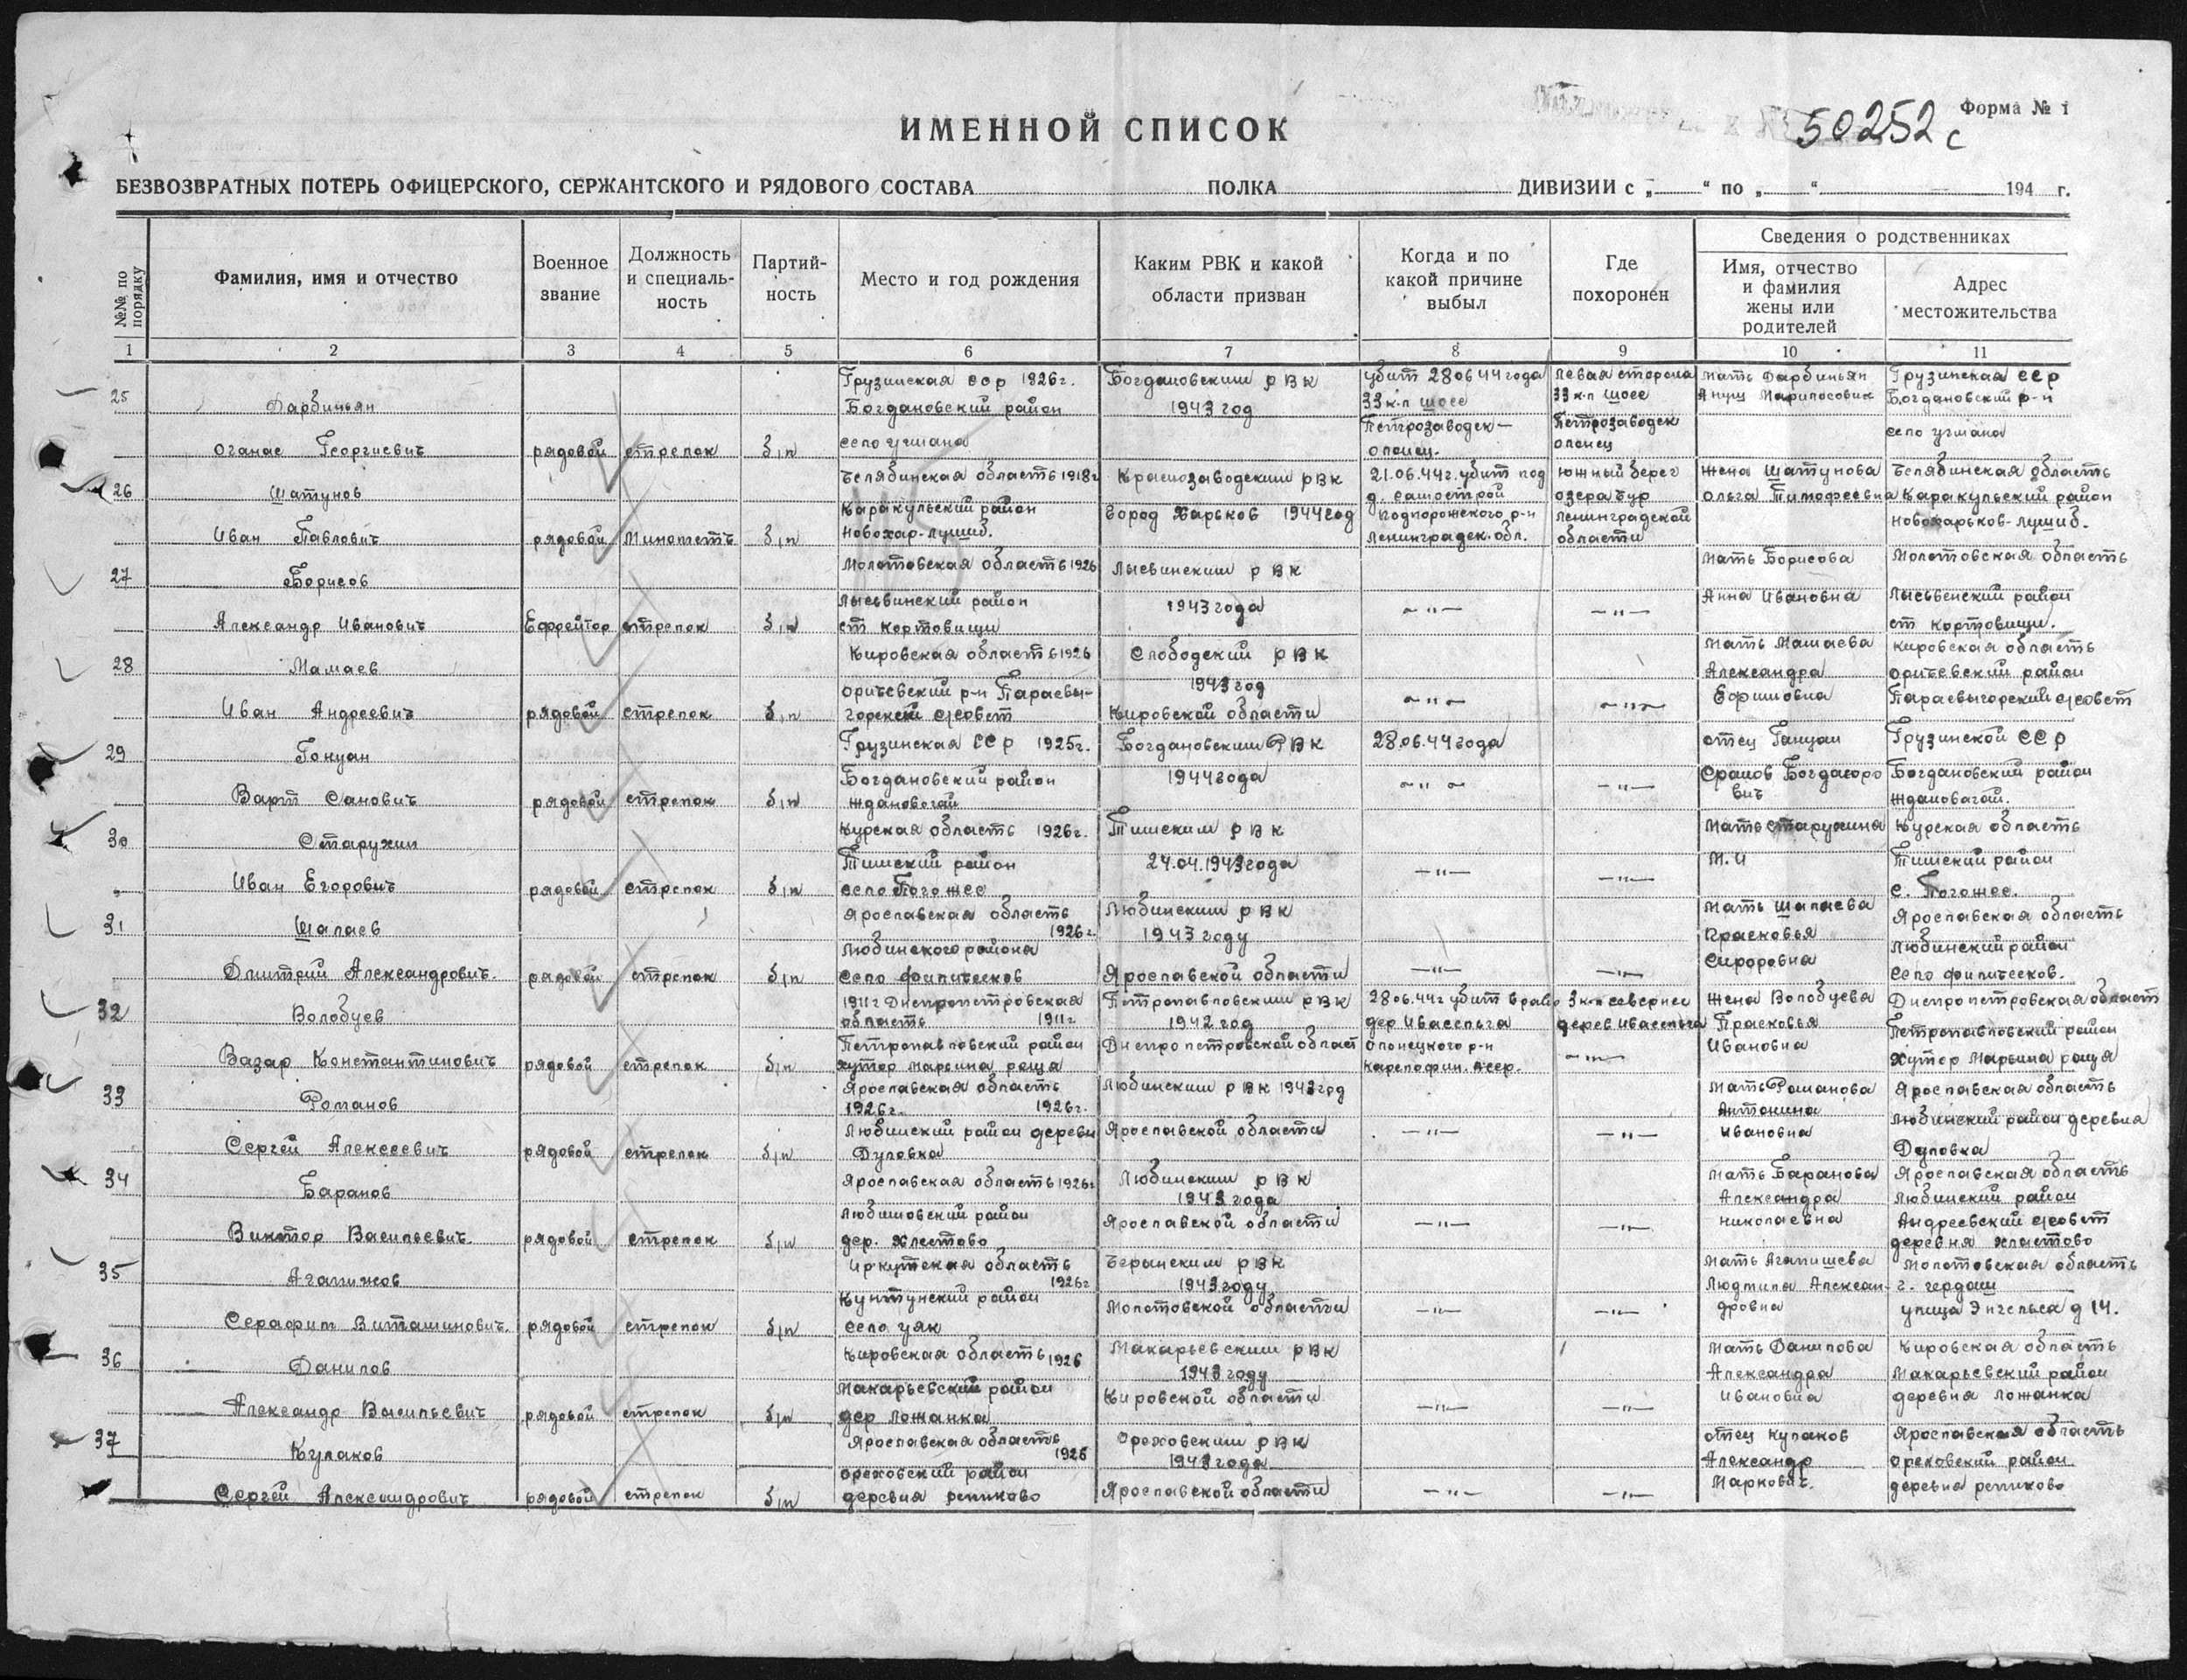 Форма № 1
50252с
ИМЕННОЙ СПИСОК
БЕЗВОЗВРАТНЫХ ПОТЕРЬ ОФИЦЕРСКОГО, СЕРЖАНТСКОГО И РЯДОВОГО СОСТАВА ПОЛКА ДИВИЗИИ с „ “ по „ “ 194 г.
№№ по порядку
Фамилия, имя и отчество
Военное звание
Должность и специаль-ность
Партий-ность
Место и год рождения
Каким РВК и какой области призван
Когда и по какой причине выбыл
Где похоронен
Сведения о родственниках
Имя, отчество и фамилия жены или родителей
Адрес местожительства
1 2 3 4 5 6 7 8 9 10 11
25 Дарбиньян
Оганас Георгиевич рядовой стрелок б/п
Грузинская ССР 1926г.
Богдановский район
село учмана
Богдановским РВК
1943 год
убит 28 06 44 года
33 к-п шосе
Петрозаводск—
олонец.
Левая сторона
33 к-п шосе
Петрозаводск
олонец
мать Дарбиньян
Грузинская ССР
Богдановский р-н
село учмана
26 Шатунов
Иван Павлович рядовой Минометч б/п
Челябинская область 1918г
Каракульский район
Новохар-лушив.
Краснозаводским РВК
город Харьков 1944год
21.06.44г. убит под
д. Самострой
Подпорожского р-н
Ленинградск. обл.
южный берег
озера Чур
Ленинградской
области
жена Шатунова
Ольга Тимофеевна
Челябинская область
Каракульский район
Новохарьков-лушив.
27 Борисов
Александр Иванович Ефрейтор стрелок б/п
Молотовская область 1926
Лысьвинский район
ст кормовищи
Лысвинским РВК
1943 года
—"— —"—
мать Борисова
Анна Ивановна
Молотовская область
Лысьвенский район
ст кормовищи.
28 Мамаев
Иван Андреевич рядовой стрелок б/п
Кировская область 1926
оричевский р-н Параевы-
горский с/совет
Слободский РВК
1943 год
Кировской области
—"— —"—
мать Мамаева
Александра
Ефимовна
Кировская область
оричевский район
Параевыгорский с/совет
29 Гонуан
Варт Санович рядовой стрелок б/п
Грузинская ССР 1925г.
Богдановский район
ждановогай
Богдановским РВК
1944 года
28.06.44 года
—"— —"—
отец Гануан
Срапов Богдасоро
вич
Грузинской ССР
Богдановский район
ждановагай.
30 Старухин
Иван Егорович рядовой стрелок б/п
Курская область 1926г.
Тимский район
село Погожее
Тимским РВК
24.04.1943 года
—"— —"—
мать Старухина
М.И
Курская область
Тимский район
с. Погожее.
31 Шалаев
Дмитрий Александрович. рядовой стрелок б/п
Ярославская область
1926г.
Любимского района
село филическов
Любимским РВК
1943 году
Ярославской области
—"— —"—
мать Шалаева
Прасковья
Сидоровна
Ярославская область
Любимский район
село филическов.
32 Волобуев
Вазар Константинович рядовой стрелок б/п
1911г Днепропетровская
область 1911г
Петропавловский район
хутор Марьина роща
Петропавловским РВК
1942 год
Днепропетровской област
28 06.44г убит в рай
дер Ивасельга
Олонецкого р-н
Карелофин. АССР.
3 к-п севернее
дерев Ивасельга
—"—
жена Волобуева
Прасковья
Ивановна
Днепропетровская област
Петропавловский район
хутор Марьина роща
33 Романов
Сергей Алексеевич рядовой стрелок б/п
Ярославская область
1926г. 1926г.
Любимский район деревн
Дуловка
Любимским РВК 1943 год
Ярославской области
—"— —"—
мать Романова
Антонина
Ивановна
Ярославская область
Любимский район деревня
Дуловка
34 Баранов
Виктор Васильевич. рядовой стрелок б/п
Ярославская область 1926г
Любимовский район
дер. Хлестово
Любимским РВК
1943 года
Ярославской области
—"— —"—
мать Баранова
Александра
Николаевна
Ярославская область
Любимский район
Андреевский с/совет
деревня хластово
35 Агапижов
Серафим Виташинович. рядовой стрелок б/п
Иркутская область
1926г
Кунтунский район
село уяк
Берынским РВК
1943 году
Молотовской области
—"— —"—
мать Агапишева
Людмила Алексан-
дровна
Молотовская область
г. чердаш
улица Энгельса д 14.
36 Данилов
Александр Васильевич рядовой стрелок б/п
Кировская область 1926
Макарьевский район
дер Ложанка
Макарьевским РВК
1943 году
Кировской области
—"— —"—
мать Данилова
Александра
Ивановна
Кировская область
Макарьевский район
деревня Ложанка
37 Кулаков
Сергей Александрович рядовой стрелок б/п
Ярославская область
1926
ореховский район
деревня репиково
Ореховским РВК
1943 года
Ярославской области
—"— —"—
отец Кулаков
Александр
Маркович.
Ярославская область
ореховский район
деревня репиково